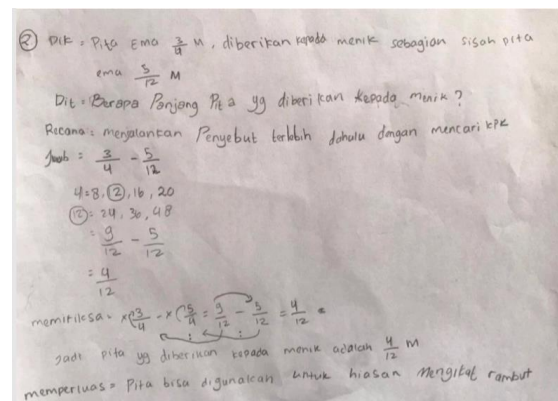 ② Dik = Pita Ema 3/4 M, diberikan kepada menik sebagian sisah pita
ema 5/12 M
Dit = Berapa Panjang Pita yg diberikan kepada menik?
Recana = menjalankan Penyebut terlebih dahulu dengan mencari KPK
Jwab = 3/4 - 5/12
4=8, ⑫, 16, 20
⑫= 24, 36, 48
= 9/12 - 5/12
= 4/12
memiriksa = = 9/12 - 5/12 = 4/12
Jadi pita yg diberikan kepada menik adalah 4/12 m
memperluas = Pita bisa digunakan untuk hiasan mengikat rambut